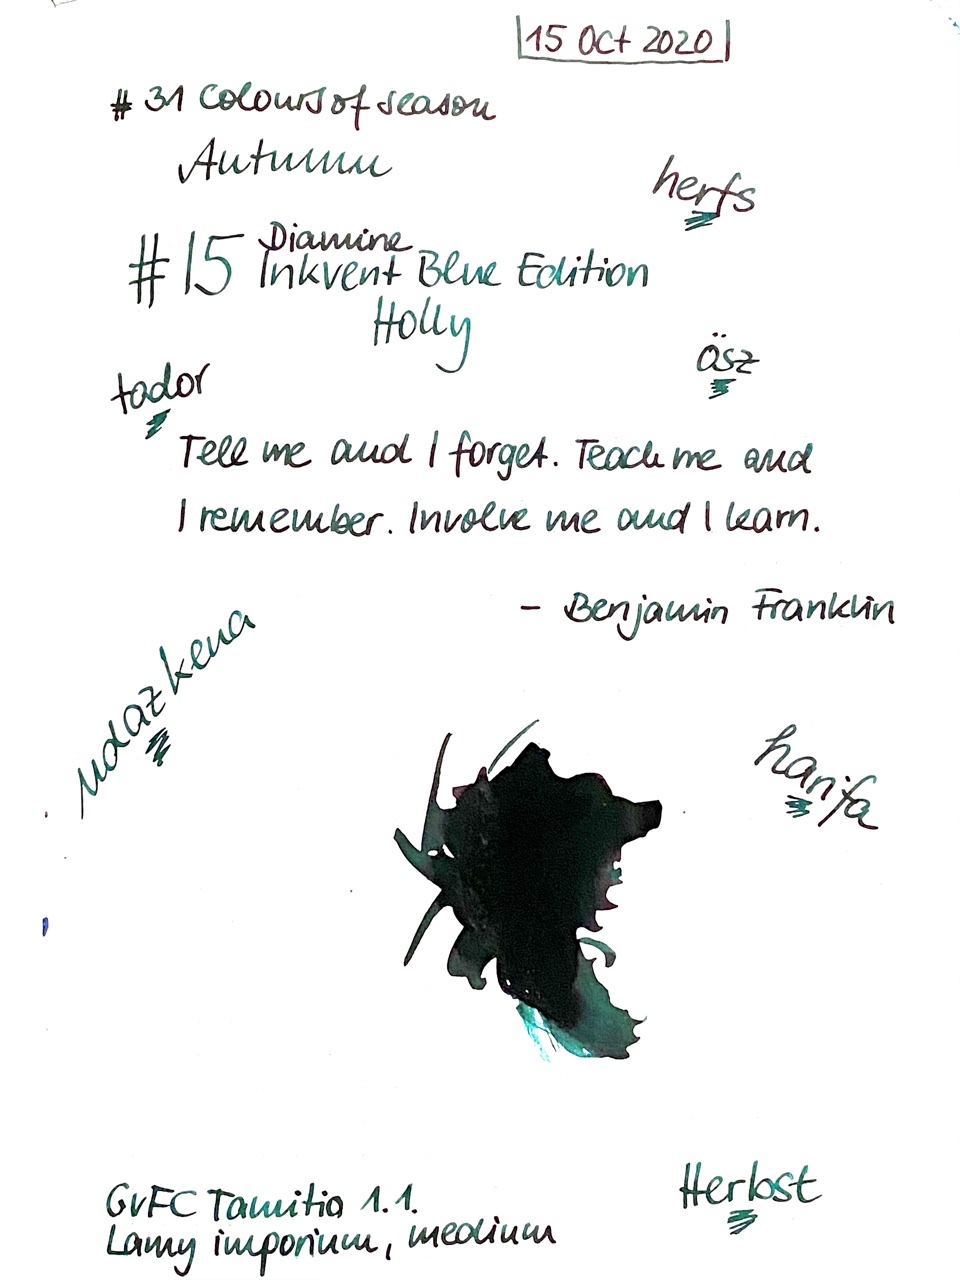 15 Oct 2020
# 31 Colours of season
Autumn
herfs
# 15 Diamine
Inkvent Blue Edition
Holly
ősz
tador
Tell me and I forget. Teach me and
I remember. Involve me and I learn.
- Benjamin Franklin
udazkena
harifa
Herbst
GvFC Tamitio 1.1.
Lamy imporium, medium